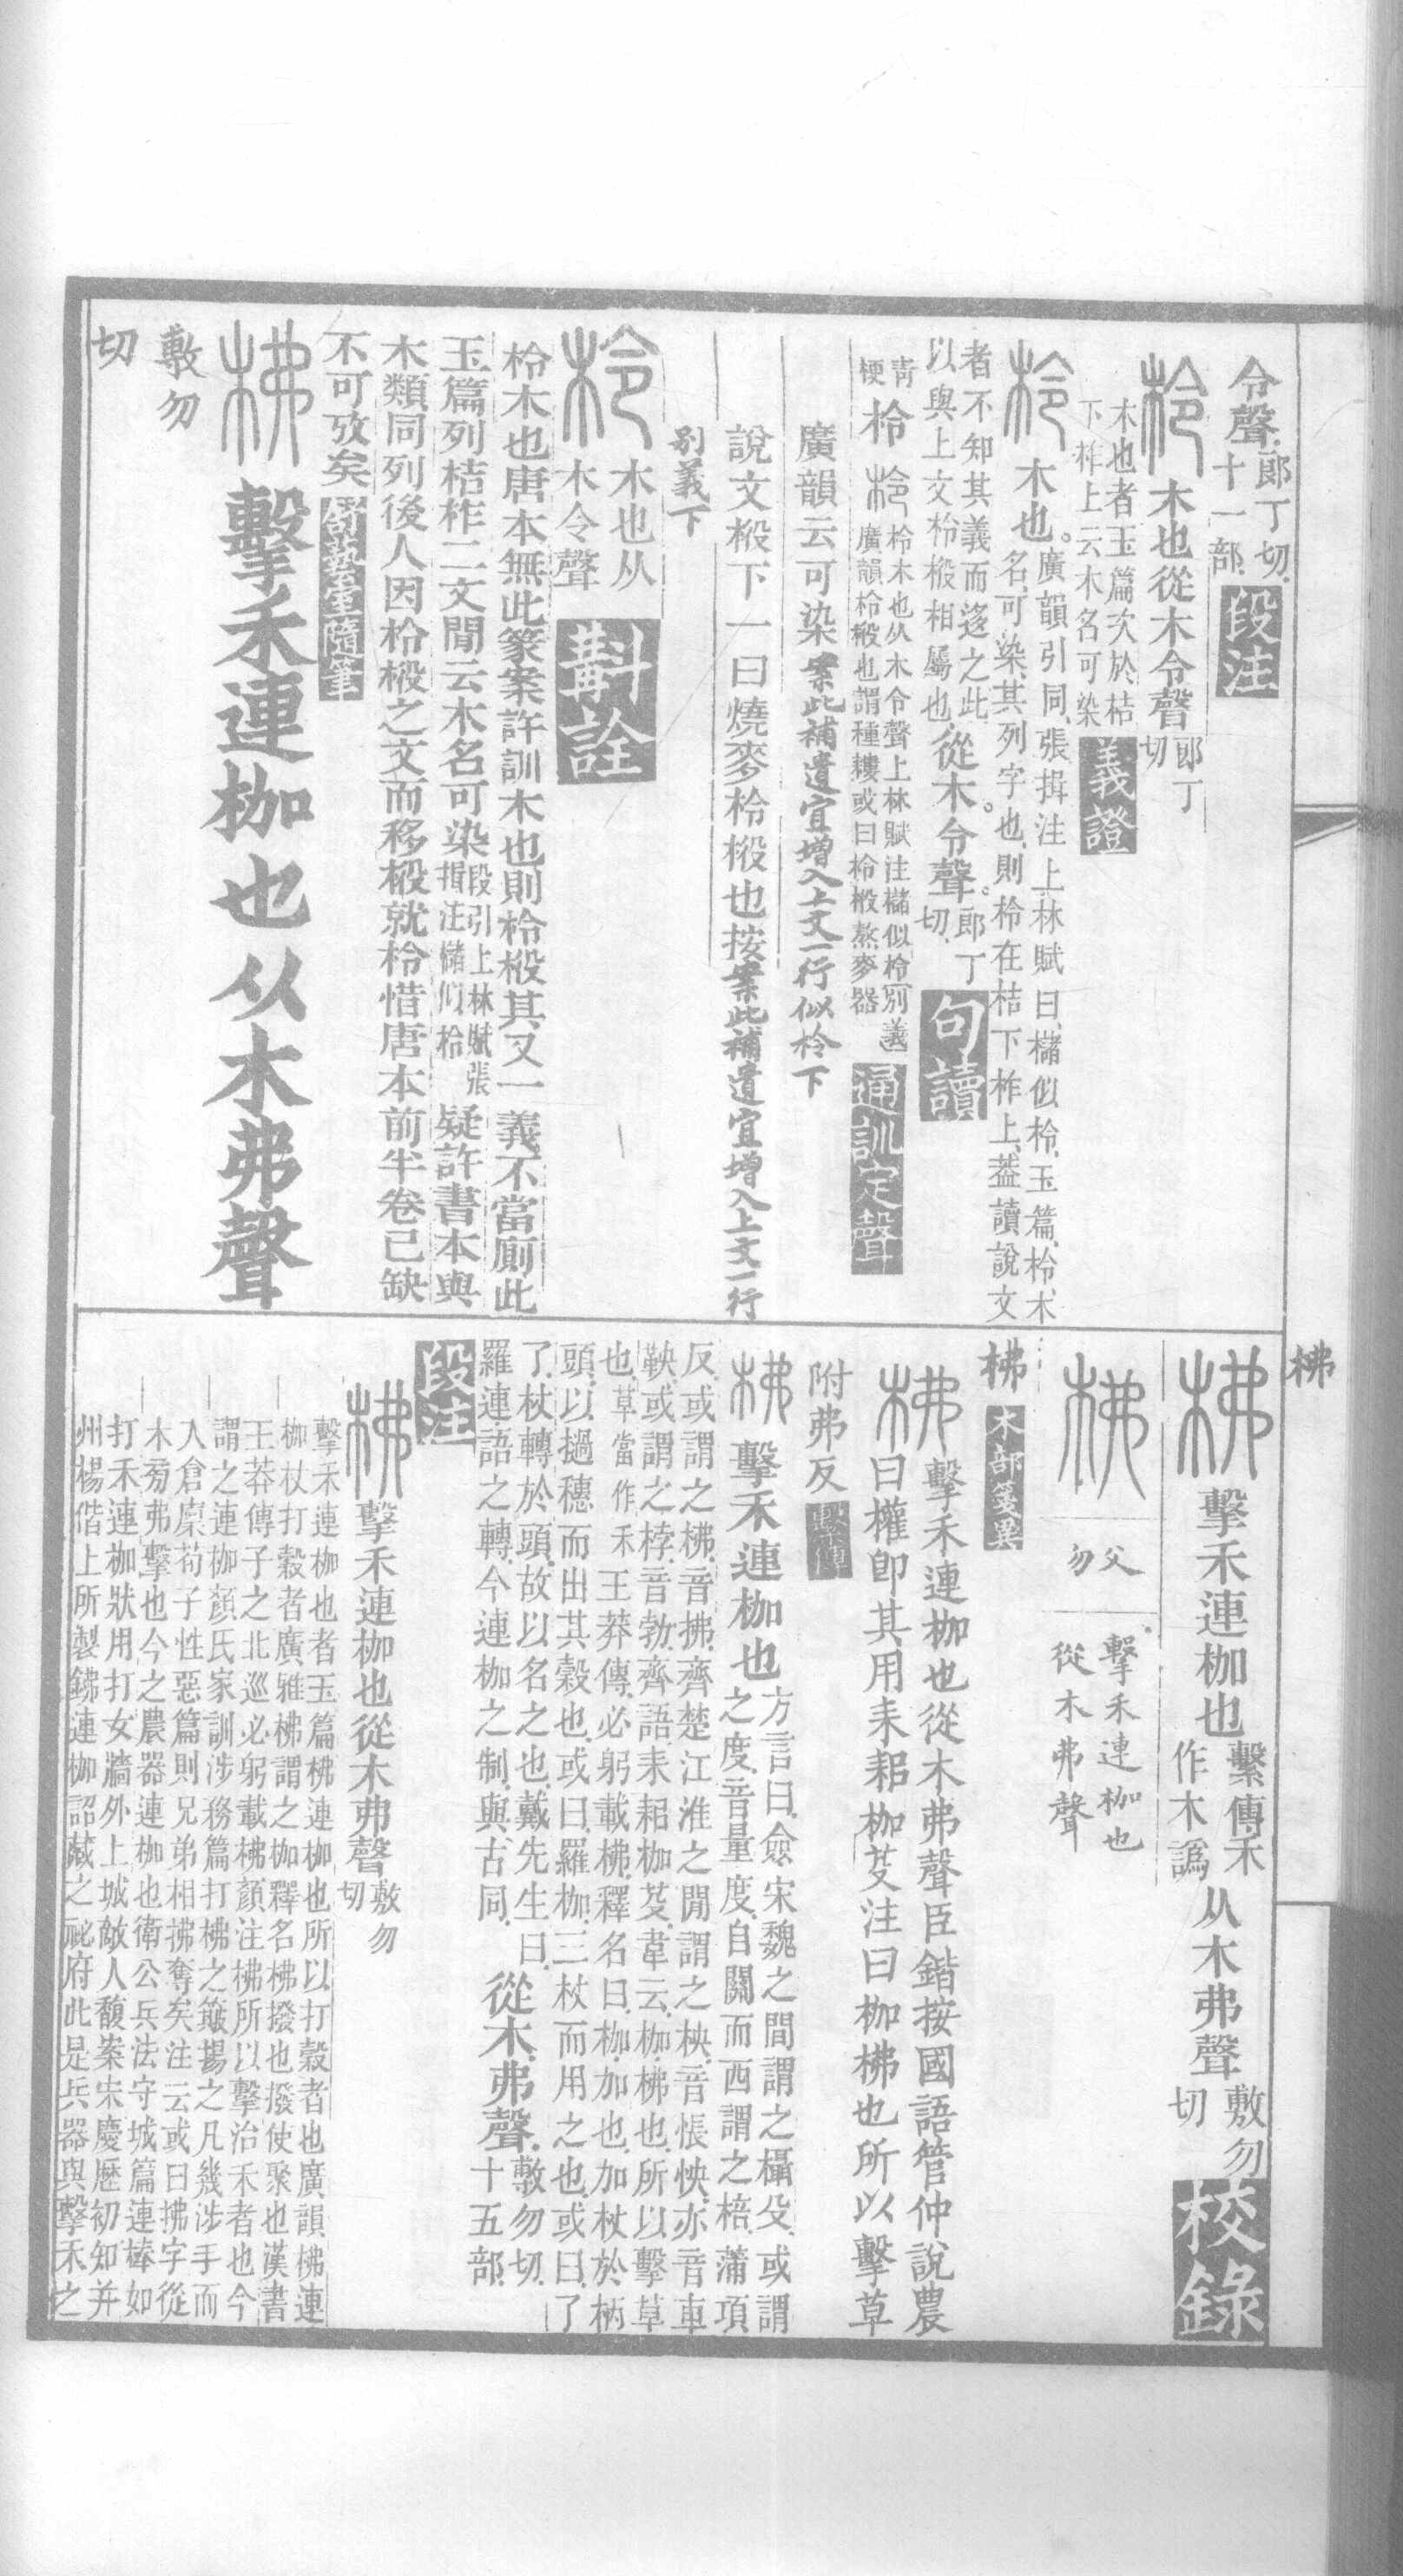 令聲郎丁切十一部段注
柃木也從木令聲郎丁切義證
木也者玉篇次於桔
下柞上云木名可染
柃木也廣韻引同張揖注上林賦曰櫧似柃玉篇柃木
名可染其列字也則柃在桔下柞上葢讀說文
者不知其義而逐之此
以與上文柃椴相屬也從木令聲郎丁切句讀
青
梗
柃柃柃木也从木令聲上林賦注櫧似柃別義
廣韻柃椴也謂種耬或曰柃椴熬麥器通訓定聲
廣韻云可染案此補遺宜增入上文一行似柃下
說文椴下一曰燒麥柃椴也按案此補遺宜增入上文一行
別義下
柃木也从木令聲斠詮
柃木也唐本無此篆案許訓木也則柃椴其又一義不當廁此
玉篇列桔柞二文間云木名可染段引上林賦張揖注櫧似柃疑許書本與
木類同列後人因柃椴之文而移椴就柃惜唐本前半卷已缺
不可攷矣舒埶室隨筆
柫擊禾連枷也从木弗聲
敷勿
切
柫
柫擊禾連枷也繫傳禾作木譌从木弗聲敷勿切校錄
柫父勿擊禾連枷也從木弗聲
柫木部箋異
柫擊禾連枷也從木弗聲臣鍇按國語管仲說農
曰權卽其用耒耜枷芟注曰枷柫也所以擊草
附弗反繫傳
柫擊禾連枷也方言曰僉宋魏之間謂之欇殳或謂
之度音量度自關而西謂之棓蒲項
反或謂之柫音拂齊楚江淮之閒謂之柍音悵怏亦音車
鞅或謂之桲音勃齊語耒耜枷芟韋云枷柫也所以擊草
也草當作禾王莽傳必躬載柫釋名曰枷加也加杖於柄
頭以撾穗而出其穀也或曰羅枷三杖而用之也或曰了
了杖轉於頭故以名之也戴先生曰
羅連語之轉今連枷之制與古同從木弗聲敷勿切十五部
段注
柫擊禾連枷也從木弗聲敷勿切
擊禾連枷也者玉篇柫連枷也所以打穀者也廣韻柫連
枷杖打穀者廣雅柫謂之枷釋名柫撥也撥使聚也漢書
王莽傳予之北巡必躬載柫顏注柫所以擊治禾者也今
謂之連枷顏氏家訓涉務篇打柫之簸揚之凡幾涉手而
入倉廩荀子性惡篇則兄弟相拂奪矣注云或曰拂字從
木旁弗擊也今之農器連枷也衛公兵法守城篇連棒如
打禾連枷狀用打女牆外上城敵人馥案宋慶歷初知并
州楊偕上所製鐵連枷詔藏之祕府此是兵器與擊禾之